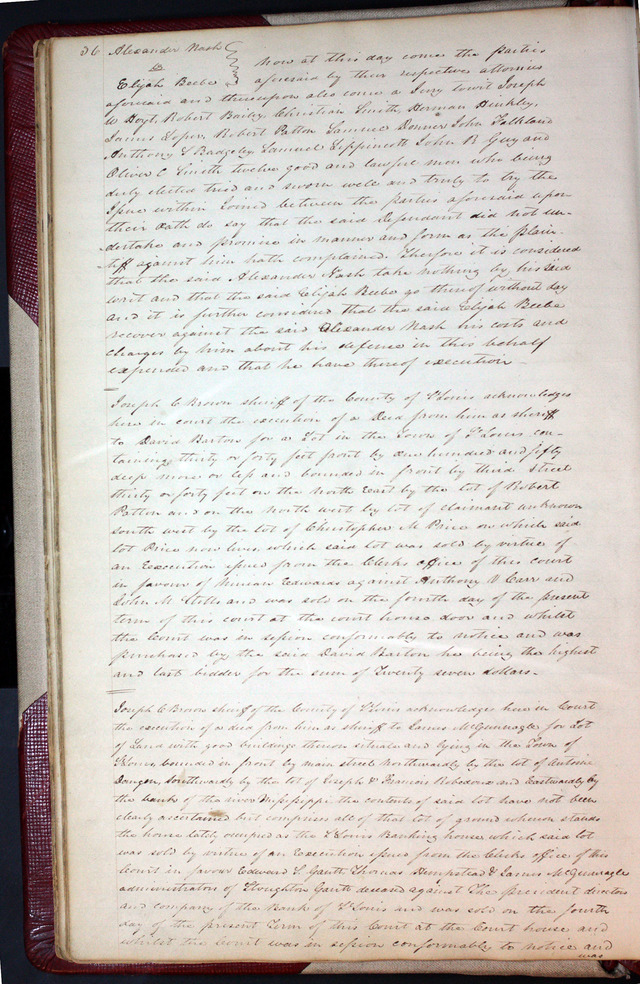 36 Alexander Nash
vs
Elijah Beebe
Now at this day come the parties
aforesaid by their respective attornies
aforesaid and thereupon also come a Jury towit Joseph
W Hoyt, Robert Bailey, Christian Smith, Herman Hinkley,
James Loper, Robert Patton Samuel Donner John
Anthony S Badgeley Samuel Lippincott John R Guy and
Oliver C Smith twelve good and lawful men who being
duly elected tried and sworn well and truly to try the
Issue within Joined between the parties aforesaid upon
their Oath do say that the said Defendant did not un-
dertake and promise in manner and form as the plain-
tiff against him hath complained. Therefore it is considered
that the said Alexander Nash take nothing by his said
writ and that the said Elijah Beebe go thereof without day
and it is further considered that the said Elijah Beebe
recover against the said Alexander Nash his costs and
charges by him about his defence in this behalf
expended and that he have thereof execution
Joseph C Brown sheriff of the County of St Louis acknowledges
here in court the execution of a Deed from him as sheriff
to David Barton for a Lot in the Town of St Louis con-
taining thirty or forty feet front by one hundred and fifty
deep more or less and bounded in front by third Street
thirty or forty feet on the North East by the lot of Robert
Patton and on the North west by lot of claimant unknown
South west by the lot of Christopher M Price on which said
lot Price now lives, which said lot was sold by virtue of
an Execution issued from the Clerks office of this court
in favour of Ninian Edwards against Anthony V Carr and
John M Stitts and was sold on the fourth day of the present
term of this court at the court house door and whilst
the Court was in session conformably to notice and was
purchased by the said David Barton he being the highest
and last bidder for the sum of Twenty seven dollars.
Joseph C Brown sheriff of the County of St Louis acknowledges here in Court
the execution of a deed from him as sheriff to James McGunnegle for Lot
of Land with good buildings thereon situate and lying in the Town of
St Louis, bounded in front by main street Northwardly by the lot of Antoine
Dangen, Southwardly by the lot of Joseph & Francis Robedoux and Eastwardly by
the bank of the river Mississippi the contents of said lot have not been
clearly ascertained but comprises all of that lot of ground whereon stands
the house lately occupied as the St Louis Banking house, which said lot
was sold by virtue of an Execution issued from the Clerks office of this
Court in favour Edward S. Gantt Thomas Hempstead & James McGunnegle
administrators of Stoughton Gantt deceased against The president directors
and company of the Bank of St Louis and was sold on the fourth
day of the present Term of this Court at the Court house and
whilst the Court was in session conformably to notice and
was